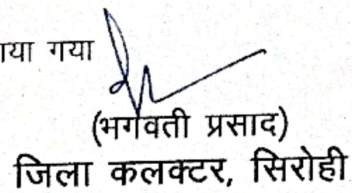 गया
(भगवती प्रसाद)
जिला कलक्टर, सिरोही